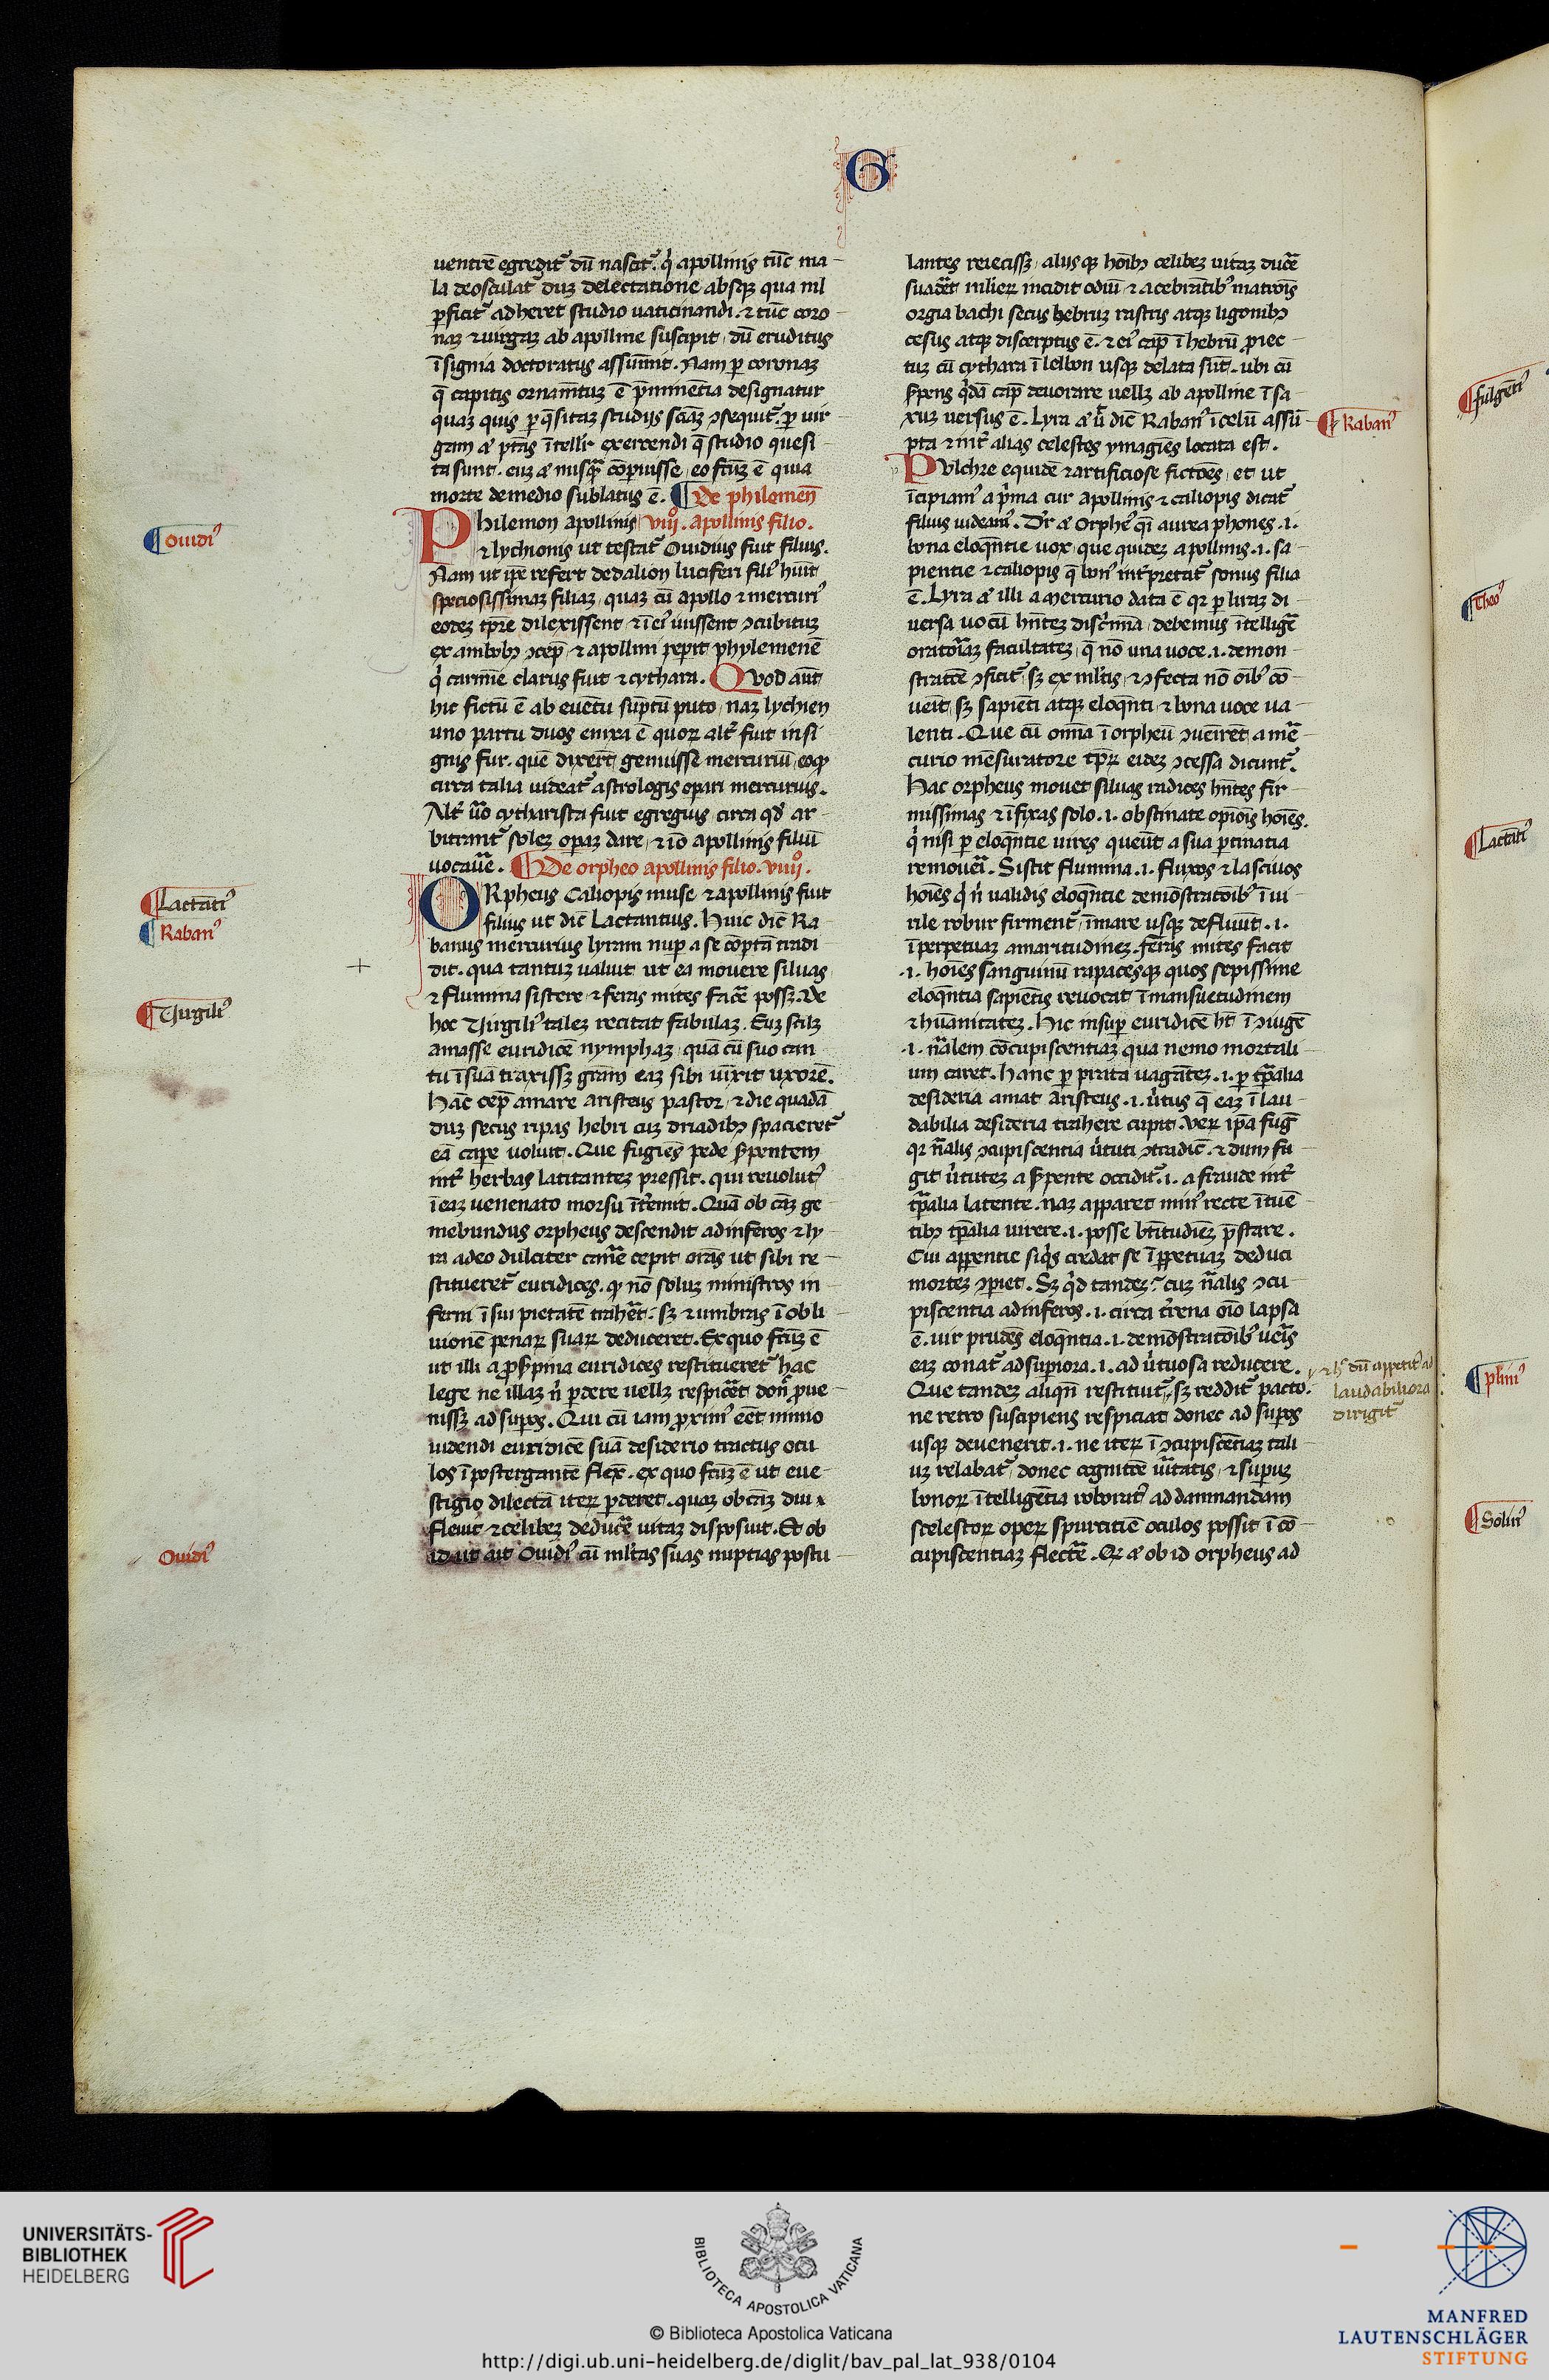 G
uentrē egredit᷑ dū nascit᷑. q̇ apollinis tūc ma
la deosculat᷑ duꝫ delectatione absqꝫ qua nil
ꝓficit᷑ adheret studio uaticinandi. ⁊ tūc coro
naꝫ ⁊ uirgaꝫ ab apolline suscipit, dū eruditus
īsignia doctoratus assūmit. Nam ꝑ coronaꝫ
q̄ capitis ornam̄tuꝫ ē p̄minētia designatur
quaꝫ quis ꝑ q̄sitaꝫ studijs sciāꝫ ꝯsequit᷑. ꝑ uir
gam
exercendi q̄ studio quesi
ta sunt. euꝫ
cōpuisse, eo fc̄uꝫ ē quia
morte de medio sublatus ē. ¶ De philemen̄
Philemon apollinis viijº. apollinis filio.
⁊ lychionis ut testat᷑ Ouidius fuit filius.
Nam ut ip̄e refert dedalion luciferi filiꝰ hūit
speciosissimaꝫ filiaꝫ, quaꝫ cū apollo ⁊ mercuriꝰ
eodeꝫ tp̄re dilexissent, ⁊ ī eiꝰ iuissent ꝯcubituꝫ
ex ambobꝫ ꝯcep̄, ⁊ apollini peꝑit phylemenē
q̇ carmīe clarus fuit ⁊ cythara. Quod aūt
hic fictū ē ab euētu sūptū puto, naꝫ lychien
uno partu duos enixa ē quoꝝ alt̓ fuit insi
gnis fur. quē dixer̄t genuisse mercuriū, eo ꝙ
circa talia uideat᷑ astrologis oꝑari mercurius.
Alt̓ u̓o cytharista fuit egregius, circa qd̓ ar
bitrant᷑ soleꝫ oꝑaꝫ dare, ⁊ iō apollinis filiū
uocaue̓. ¶ De orpheo apollinis filio. viiijº.
ORpheus Caliopis muse ⁊ apollinis fuit
filius ut dic̄ Lactantius. Huic dic̄ Ra
banus mercurius lyram nuꝑ a se cōptā tradi
dit. qua tantuꝫ ualuit ut ea mouere siluas
⁊ flumina sistere, ⁊ feras mites facē possꝫ. De
hoc Uirgiliꝰ taleꝫ recitat fabulaꝫ. Euꝫ scilꝫ
amasse euridicē nymphaꝫ, quā cū suo can
tu ī suā traxissꝫ grām eaꝫ sibi uīxit uxorē.
Hāc cep̄ amare aristeus pastor, ⁊ die quadā
duꝫ secus ripas hebri cuꝫ driadibꝫ spacieret᷑
eā caꝑe uoluit. Que fugiēs pede s̓pentem
int̓ herbas latitanteꝫ pressit. qui reuolutꝰ
ī eaꝫ uenenato morsu īt̓emit. Quā ob cāꝫ ge
mebundus orpheus descendit ad inferos ⁊ ly
ra adeo dulciter canē cepit orās ut sibi re
stitueret᷑ euridices. ꝙ nō soluꝫ ministros in
ferni ī sui pietatē trahēt. sꝫ ⁊ umbras ī obli
uionē penaꝝ suaꝝ deduceret. Ex quo fc̄uꝫ ē
ut illi a ꝓs̓pina euridices restitueret᷑ hac
lege ne illaꝫ ꝑdere uellꝫ respicēt don̄ ꝓue
nissꝫ ad suꝑos. Qui cū iam ꝓximꝰ eēt nimio
uidendi euridicē suā desiderio tractus ocu
los ī postergantē flex̄. ex quo fc̄uꝫ ē ut eue
stigio dilectā iteꝝ ꝑderet. quaꝫ ob cāꝫ diu
fleuit ⁊ celibeꝫ deducē uitaꝫ disposuit. Et ob
id ut ait Ouidiꝰ cū ml̓tas suas nuptias postu
lantes reiecissꝫ, alijsqꝫ hoībꝫ celibeꝫ uitaꝫ ducē
suadēt mlieꝝ incidit odiū, ⁊ a cebrātibꝰ matrōis
orgia bachi secus hebruꝫ rastris atqꝫ ligonibꝫ
cesus atqꝫ discerptus ē. ⁊ eiꝰ cap̄ ī hebrū ꝓiec
tuꝫ cū cythara ī lesbon usqꝫ delata sūt. ubi cū
s̓pens q̇dā cap̄ deuorare uellꝫ ab apolline ī sa
xuꝫ uersus ē. Lyra
dic̄ Rabanꝰ ī celū assū
pta ⁊ int̓ alias celestes ymagīes locata est.
Pulchre equidē ⁊ artificiose fictōes, et ut
īcipiamꝰ a p̓ma cur apollinis ⁊ caliopis dicat᷑
filius uideamꝰ. Dr̄
orpheꝰ q̄i aurea phones .i.
bona eloq̄ntie uox, que quideꝫ apollinis .i. sa
pientie ⁊ caliopis q̄ bonꝰ int̓pretat᷑ sonus filia
ē. Lyra
illi a mercurio data ē qꝛ ꝑ liraꝫ di
uersa uocū hn̄teꝫ disc̓mīa, debemus ītelligē
oratoriaꝫ facultateꝫ, q̄ nō una uoce .i. demon
stratōe ꝯficit᷑, sꝫ ex ml̓tis, ⁊ ꝯfecta nō oībꝰ cō
ueīt, sꝫ sapiēti atqꝫ eloq̄nti ⁊ bona uoce ua
lenti. Que cū omīa ī orpheū ꝯueīrēt, a m̓
curio mēsuratore tp̄ꝝ eideꝫ ꝯcessa dicunt᷑.
Hac orpheus mouet siluas radices hn̄tes fir
missimas ⁊ īfixas solo .i. obstinate opīois hoīes.
q̇ nisi ꝑ eloq̄ntie uires queūt a sua ꝑtinatia
remoueri. Sistit flumina .i. fluxos ⁊ lasciuos
hoīes q̇ n̓ ualidis eloq̄ntie demōstratōibꝰ ī ui
rile robur firment᷑, ī mare usqꝫ defluūt .i.
ī perpetuaꝫ amaritudineꝫ. feras mites facit
.i. hoīes sanguinū rapacesqꝫ quos sepissime
eloq̄ntia sapiētis reuocat ī mansuetudinem
⁊ hūanitateꝫ. Hic insuꝑ euridicē ht̄ ī ꝯiugē
.i. n̄alem cōcupiscentiaꝫ qua nemo mortali
um caret. Hanc ꝑ prata uagāteꝫ .i. ꝑ tp̄alia
desideria amat aristeus .i. u̓tus q̄ eaꝫ ī lau
dabilia desideria trahere cupit. Veꝝ ip̄a fuḡ
qꝛ n̄alis ꝯcupiscentia u̓tuti ꝯtradic̄. ⁊ dum fu
git u̓tuteꝫ a s̓pente occidit᷑ .i. a fraude int̓
tp̄alia latente. naꝫ apparet minꝰ recte ītuē
tibꝫ tp̄alia uirere .i. posse bt̄itudieꝫ p̄stare.
Cui apꝑentie siq̇s credat se ī ꝑpetuaꝫ deduci
morteꝫ ꝯpiet. Sꝫ q̇d tandeꝫ? cuꝫ n̄alis ꝯcu
piscentia ad inferos .i. circa t̓rena oīo lapsa
ē. uir prudēs eloq̄ntia .i. demōstratōibꝰ ueris
eaꝫ conat᷑ ad suꝑiora .i. ad u̓tuosa reducere.
Que tandeꝫ aliqn̄ restituit᷑, sꝫ reddit᷑ pacto.
ne retro suscipiens respiciat donec ad suꝑos
usqꝫ deuenerit .i. ne iteꝝ ī ꝯcupiscētiaꝫ tali
uꝫ relabat᷑, donec cognitōe u̓itatis, ⁊ suꝑuꝫ
bonoꝝ ītelligētia roboratꝰ ad damnandam
scelestoꝝ opeꝝ spurcitiē oculos possit ī cō
cupiscentiaꝫ flectē. Qꝛ
ob id orpheus ad
¶ Ouidiꝰ
¶ Lactātiꝰ
¶ Rabanꝰ
¶ Uirgiliꝰ
Ouidiꝰ
¶ Rabanꝰ
⁊ h̓ dū appetitꝰ ad
laudabiliora
dirigit᷑
¶ fulgētiꝰ
¶ Theoꝰ
¶ Lactātiꝰ
¶ pliniꝰ
¶ Soliꝰ
UNIVERSITÄTS-
BIBLIOTHEK
HEIDELBERG
BIBLIOTECA APOSTOLICA VATICANA
© Biblioteca Apostolica Vaticana
http://digi.ub.uni-heidelberg.de/diglit/bav_pal_lat_938/0104
MANFRED
LAUTENSCHLÄGER
STIFTUNG